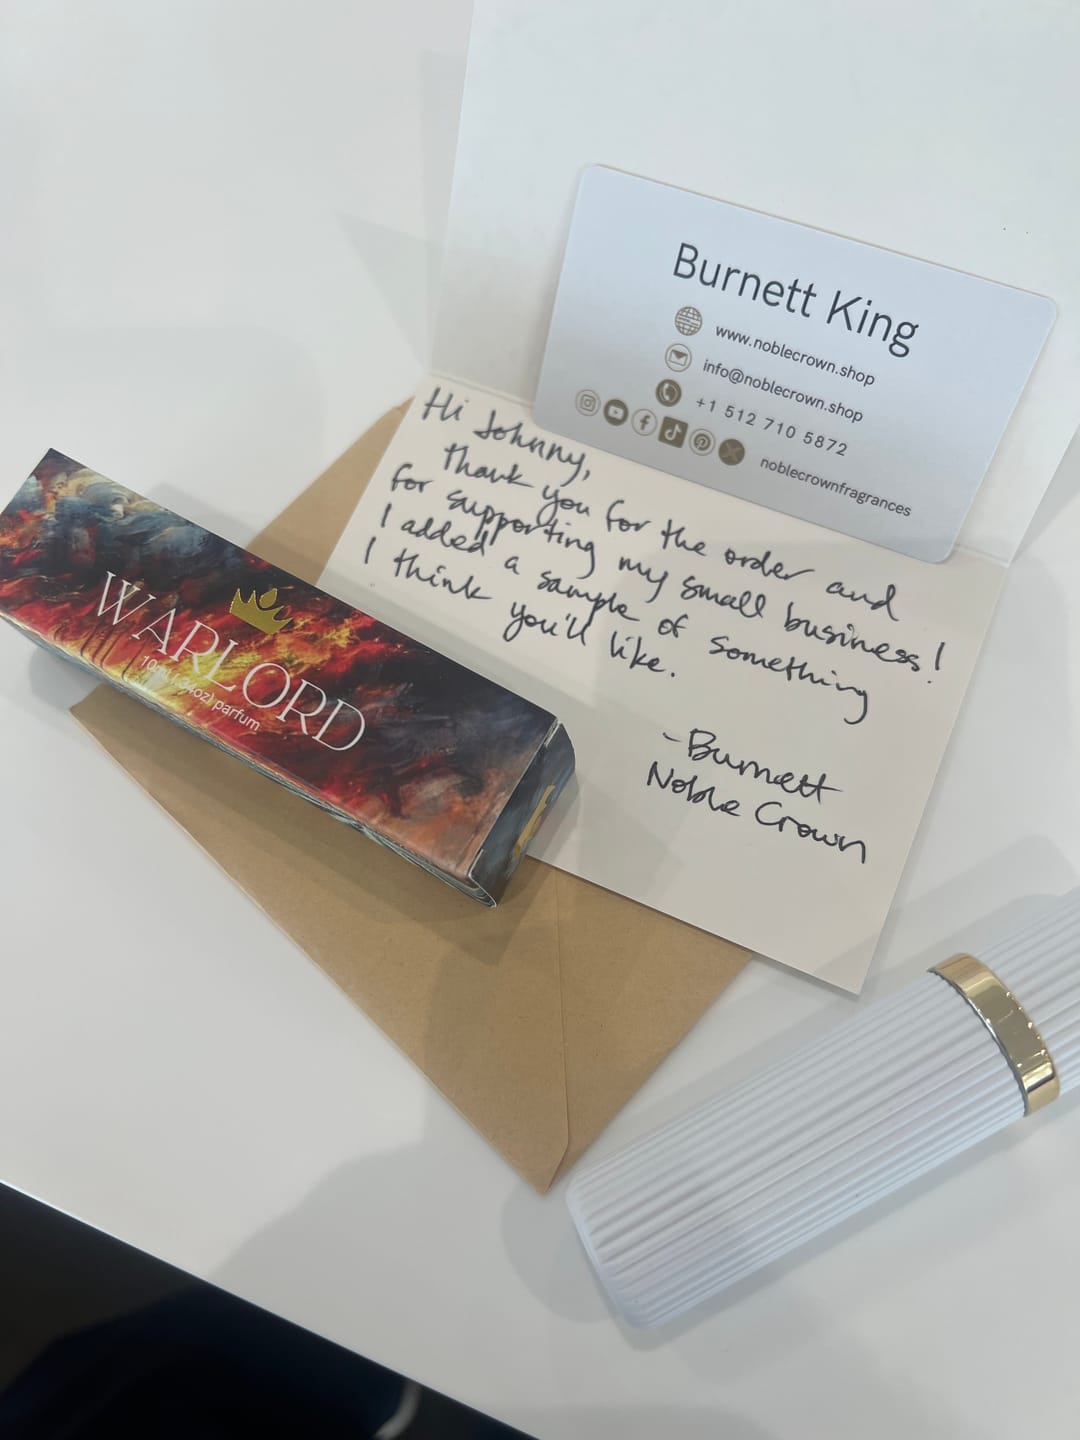 Burnett King
www.noblecrown.shop
info@noblecrown.shop
+1 512 710 5872
noblecrownfragrances
Hi Johnny,
thank you for the order and
for supporting my small business!
I added a sample of something
I think you'll like.
-Burnett
Noble Crown
WARLORD
10ml (.34oz) parfum